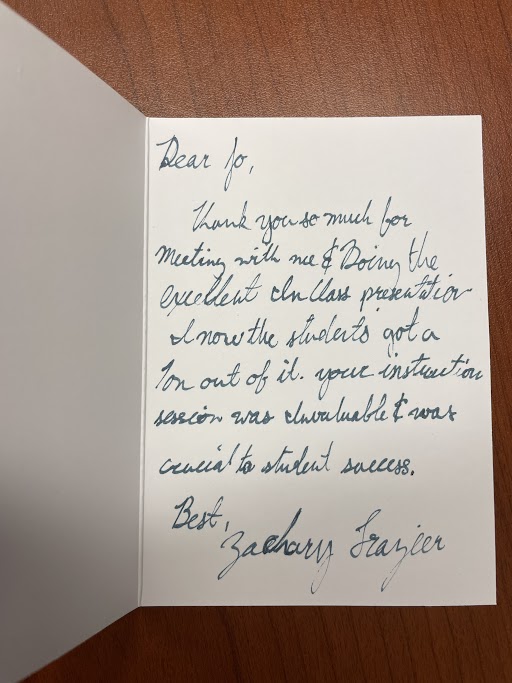 Dear Jo,
Thank you so much for
Meeting with me & Doing the
excellent In Class presentation
I now the students got a
Ton out of it. your instruction
session was Invaluable & was
crucial to student success.
Best,
Zachary Frazier